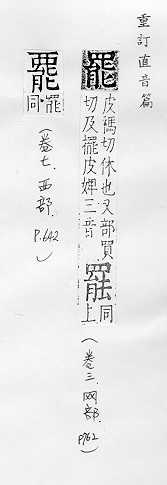 重訂直音篇
罷 皮禡切休也又部買
切及擺皮婢三音 䍜同
上 (卷三.网部.
P.162)
覇 同罷
(卷七.西部.
P.642)